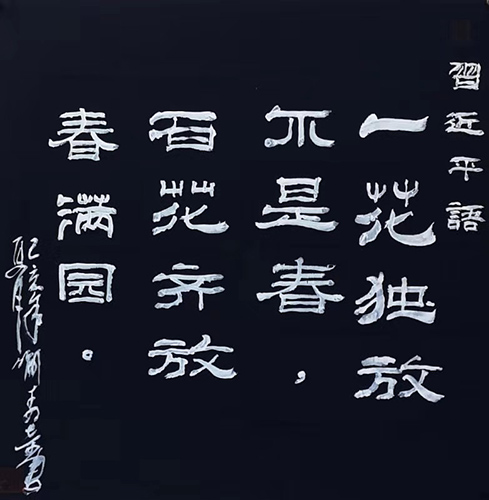 習近平語
一花独放
不是春，
百花齐放
春满园。
己亥